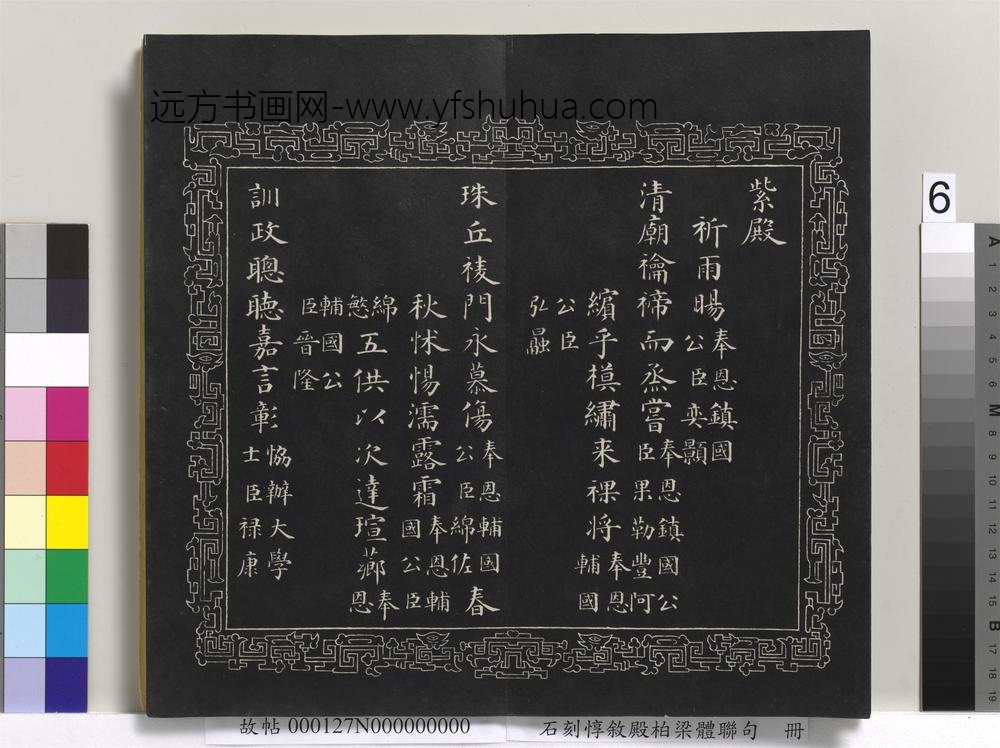 远方书画网-www.yfshuhua.com
紫殿
祈雨暘奉恩鎮國公臣奕顥
清廟禴禘而烝嘗奉恩鎮國公臣果勒豐阿
繽乎模繡来祼将奉恩輔國
公臣弘融
珠丘祾門永慕傷奉恩輔國公臣綿佐春
秋怵惕濡露霜奉恩輔國公臣
綿慜五供以次達瑄薌奉恩
輔國公臣晉隆
訓政聰聽嘉言彰協辦大學士臣禄康
6
A
1
2
3
4
5
6
M
8
9
10
11
12
13
14
15
B
17
18
19
故帖 000127N000000000
石刻惇敘殿柏梁體聯句 冊